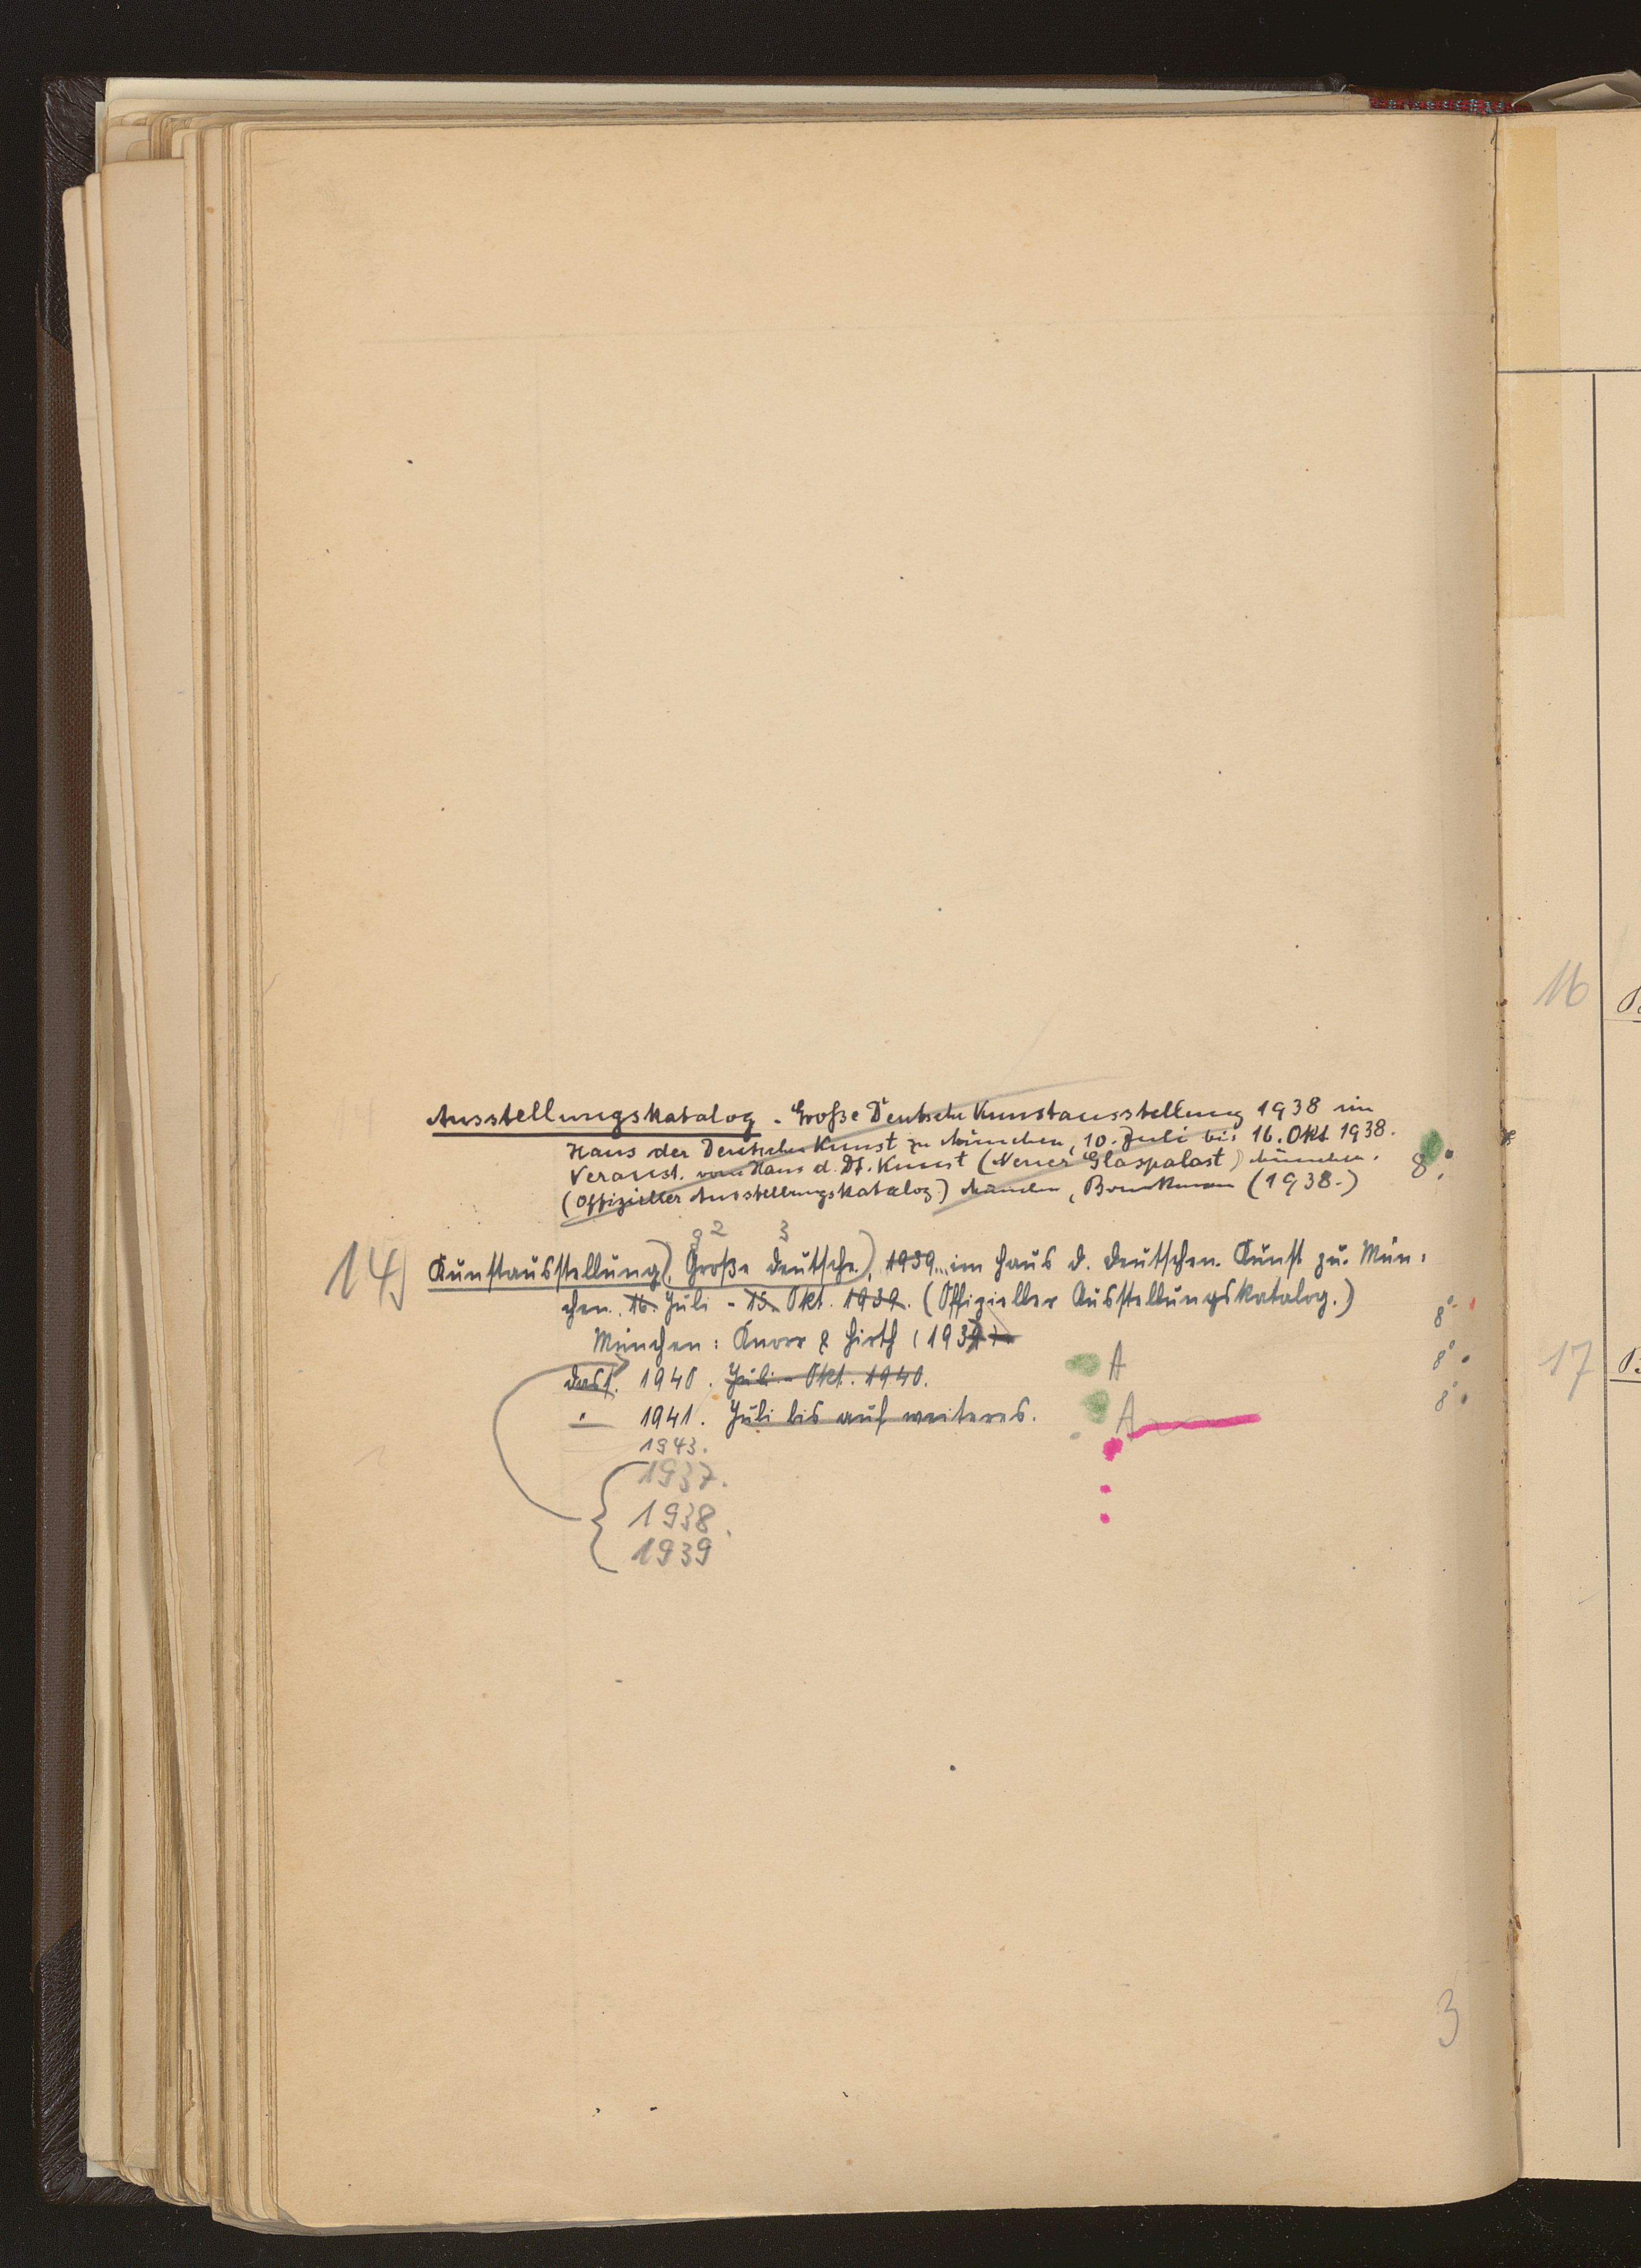 Ausstellungskatalog - Große Deutsche Kunstausstellung 1938 im
Haus der Deutschen Kunst zu München, 10. Juli bis 16. Okt 1938.
Veranst. vom Haus d. Dt. Kunst (Neuer Glaspalast) München. 8°
(Offizieller Ausstellungskatalog) München, Bruckmann (1938.)
2 3
14) Kunstausstellung), Große deutsche), 1939 im Haus d. deutschen Kunst zu Mün-
chen. 16. Juli - 15. Okt. 1939. (Offizieller Ausstellungskatalog.) 8°
München: Knorr & Hirth (1939)
Dass. 1940. Juli - Okt. 1940. A 8°
" 1941. Juli bis auf weiteres. A 8°
1943.
1937.
1938.
1939
3
16
17